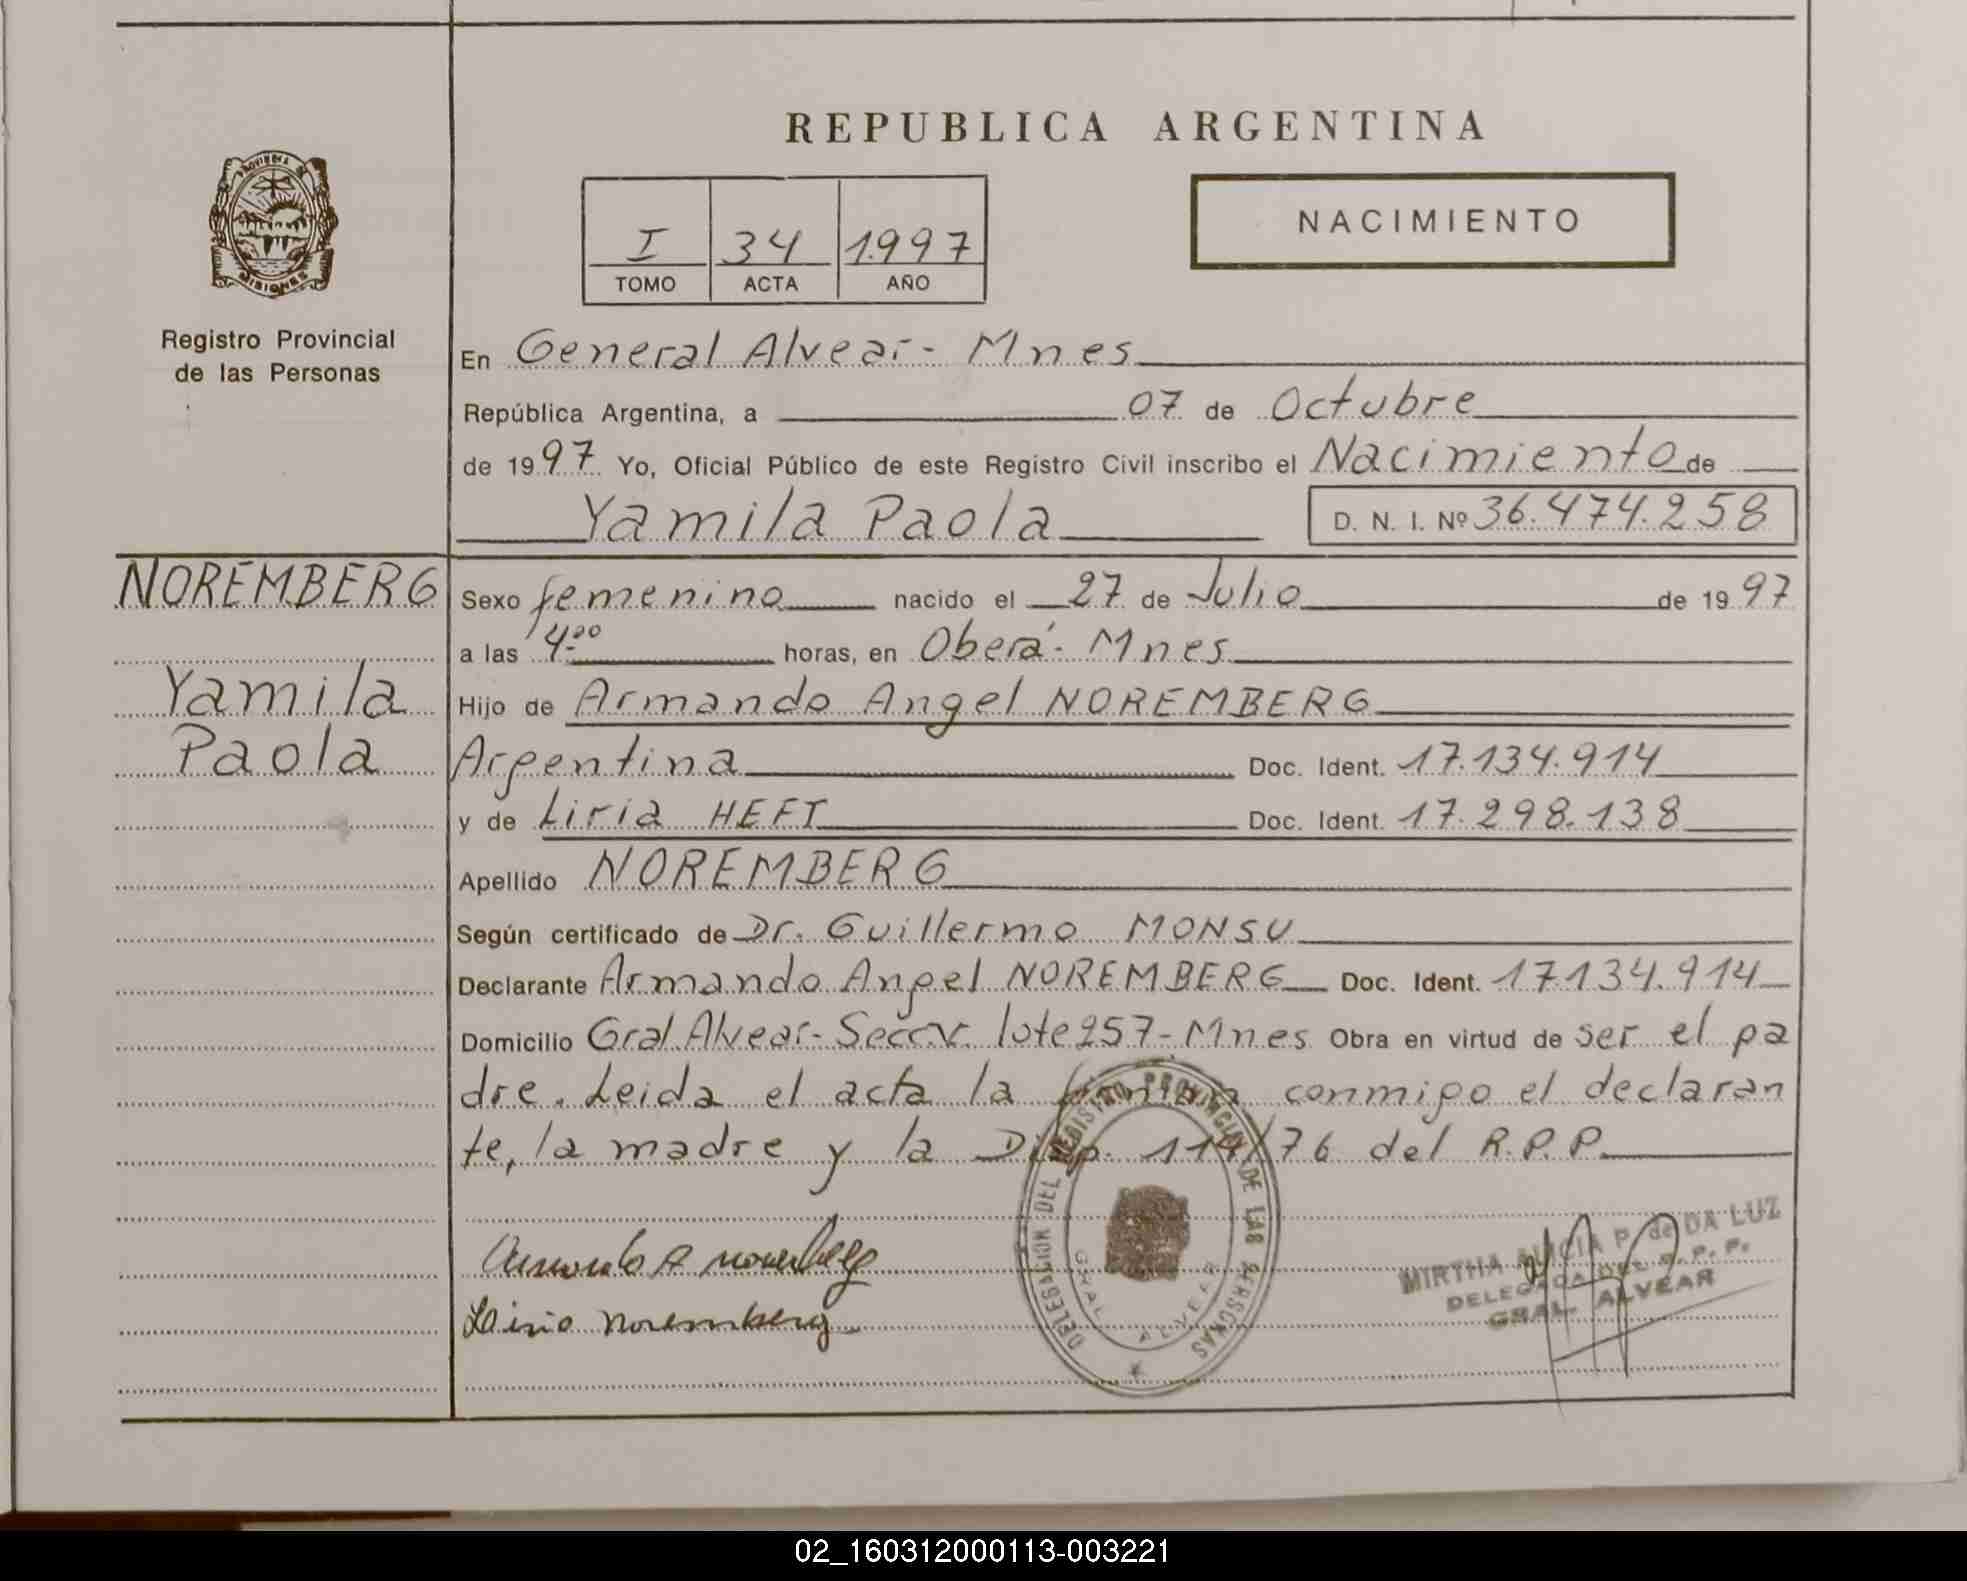 REPUBLICA ARGENTINA
PROVINCIA DE
MISIONES
Registro Provincial
de las Personas
I 34 1997
TOMO ACTA AÑO
NACIMIENTO
En General Alvear - Mnes
República Argentina, a 07 de Octubre
de 1997 Yo, Oficial Público de este Registro Civil inscribo el Nacimiento de
Yamila Paola D. N. I. Nº 36.474.258
NOREMBERG
Yamila
Paola
Sexo femenino nacido el 27 de Julio de 1997
a las 4.00 horas, en Oberá - Mnes
Hijo de Armando Angel NOREMBERG
Argentina Doc. Ident. 17.134.914
y de Liria HEFT Doc. Ident. 17.298.138
Apellido NOREMBERG
Según certificado de Dr. Guillermo MONSU
Declarante Armando Angel NOREMBERG Doc. Ident. 17134.914
Domicilio Gral Alvear - Secc.V. lote 257 - Mnes Obra en virtud de ser el pa
dre. Leida el acta la firman conmigo el declaran
te, la madre y la Disp. 114/76 del R.P.P.
Armando A Noremberg
Liria Noremberg
DELEGACION DEL REGISTRO PROVINCIAL DE LAS PERSONAS
GRAL. ALVEAR
MIRTHA ALICIA P. de DA LUZ
DELEGADA DEL R. P. P.
GRAL. ALVEAR
02_160312000113-003221